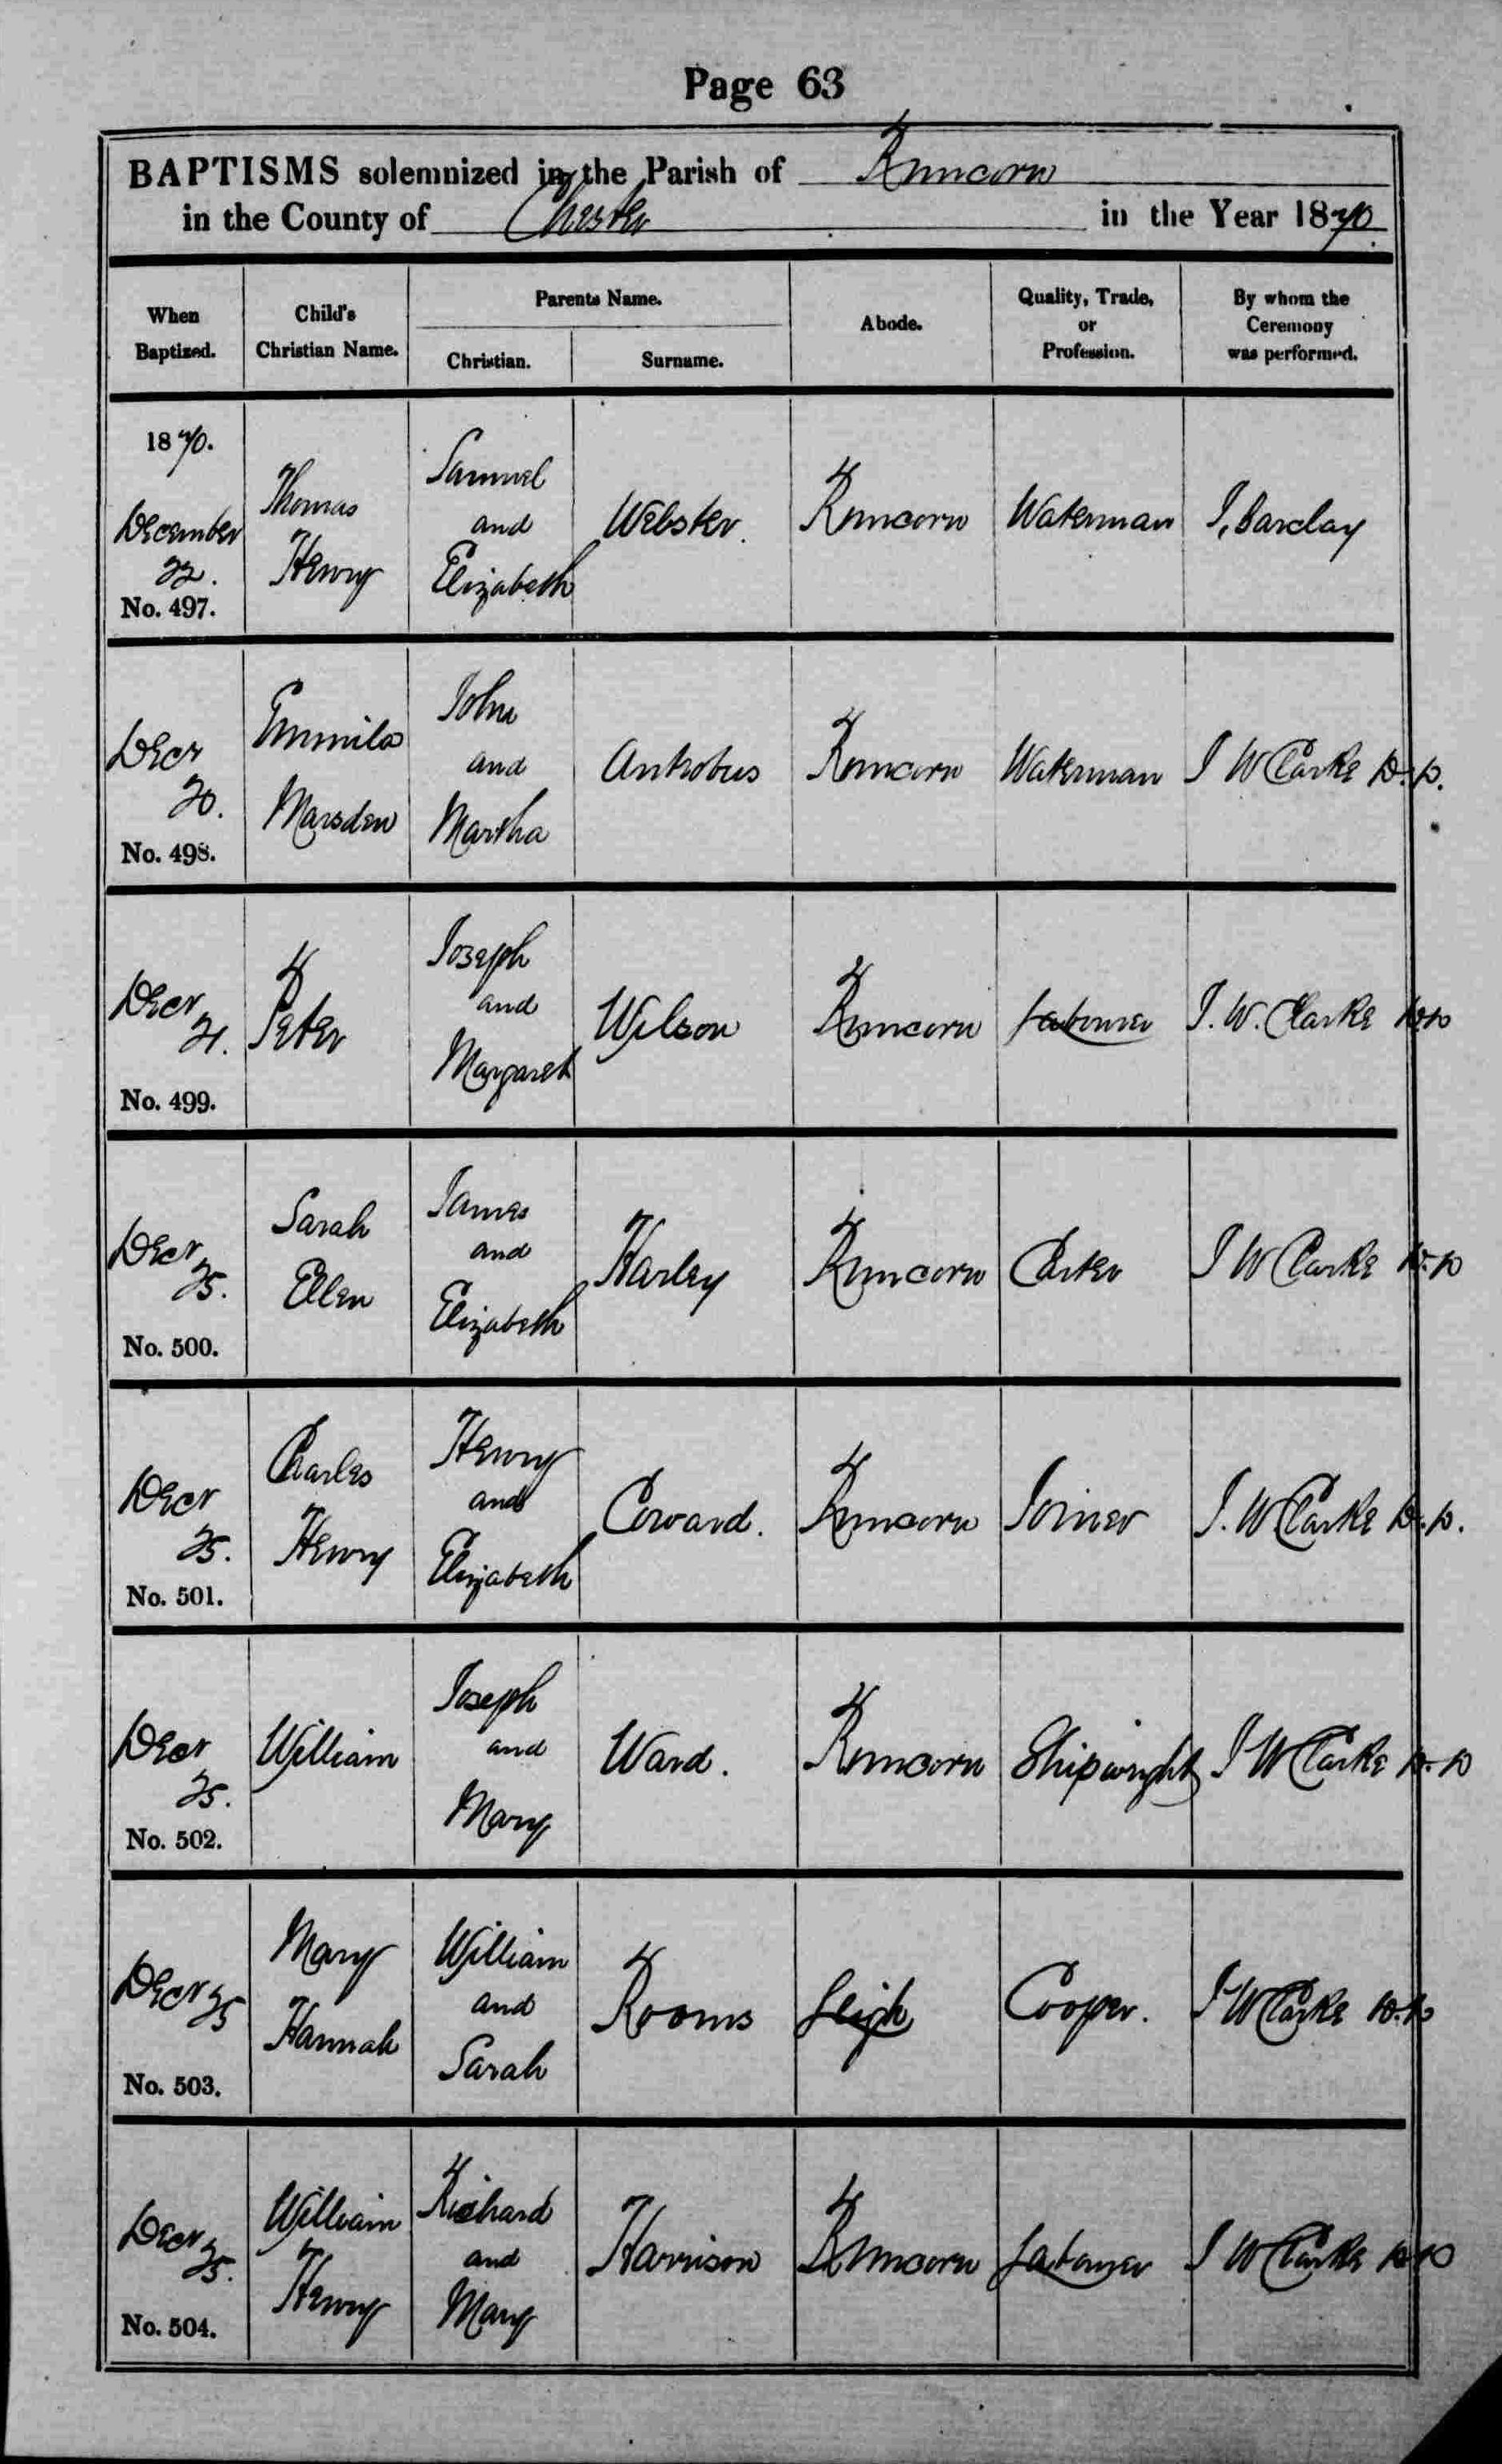 Page 63
BAPTISMS solemnized in the Parish of Runcorn
in the County of Chester in the Year 1870.
When Baptized.
Child's Christian Name.
Parents Name.
Christian.
Surname.
Abode.
Quality, Trade, or Profession.
By whom the Ceremony was performed.
1870.
December
22.
No. 497.
Thomas
Henry
Samuel
and
Elizabeth
Webster.
Runcorn
Waterman
J. Barclay
Decr
20.
No. 498.
Emmila
Marsden
John
and
Martha
Antrobus
Runcorn
Waterman
J W Clarke D.D.
Decr
21.
No. 499.
Peter
Joseph
and
Margaret
Wilson
Runcorn
Labourer
J. W. Clarke D.D
Decr
25.
No. 500.
Sarah
Ellen
James
and
Elizabeth
Harley
Runcorn
Carter
J W Clarke D.D
Decr
25.
No. 501.
Charles
Henry
Henry
and
Elizabeth
Coward.
Runcorn
Joiner
J. W Clarke D.D.
Decr
25.
No. 502.
William
Joseph
and
Mary
Ward.
Runcorn
Shipwright
J W Clarke D.D
Decr 25
No. 503.
Mary
Hannah
William
and
Sarah
Rooms
Leigh
Cooper.
J W Clarke D.D
Decr
25.
No. 504.
William
Henry
Richard
and
Mary
Harrison
Runcorn
Labourer
J W Clarke D.D